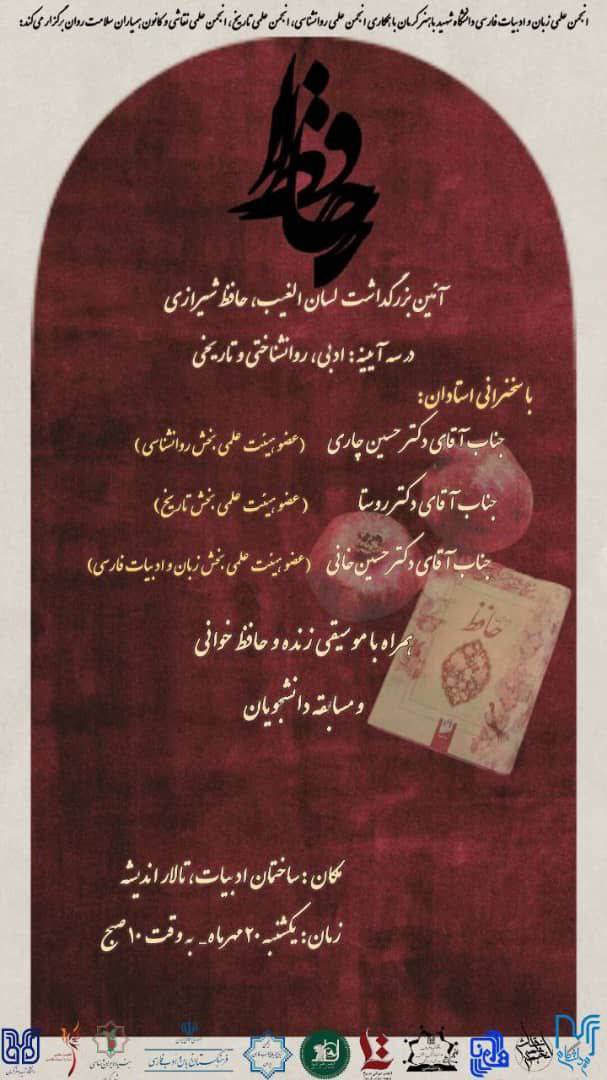 انجمن علمی زبان و ادبیات فارسی دانشگاه شهید باهنر کرمان با همکاری انجمن علمی روانشناسی، انجمن علمی تاریخ، انجمن علمی نقاشی و کانون همیاران سلامت روان برگزار می‌کند:
حافظ
آئین بزرگداشت لسان الغیب، حافظ شیرازی
در سه آیینه: ادبی، روانشناختی و تاریخی
با سخنرانی استادان:
جناب آقای دکتر حسین چاری (عضو هیئت علمی بخش روانشناسی)
جناب آقای دکتر روستا (عضو هیئت علمی بخش تاریخ)
جناب آقای دکتر حسین خانی (عضو هیئت علمی بخش زبان و ادبیات فارسی)
حافظ
همراه با موسیقی زنده و حافظ خوانی
و مسابقه دانشجویان
مکان: ساختمان ادبیات، تالار اندیشه
زمان: یکشنبه ۲۰ مهرماه_ به وقت ۱۰ صبح
فرهنگستان زبان و ادب فارسی